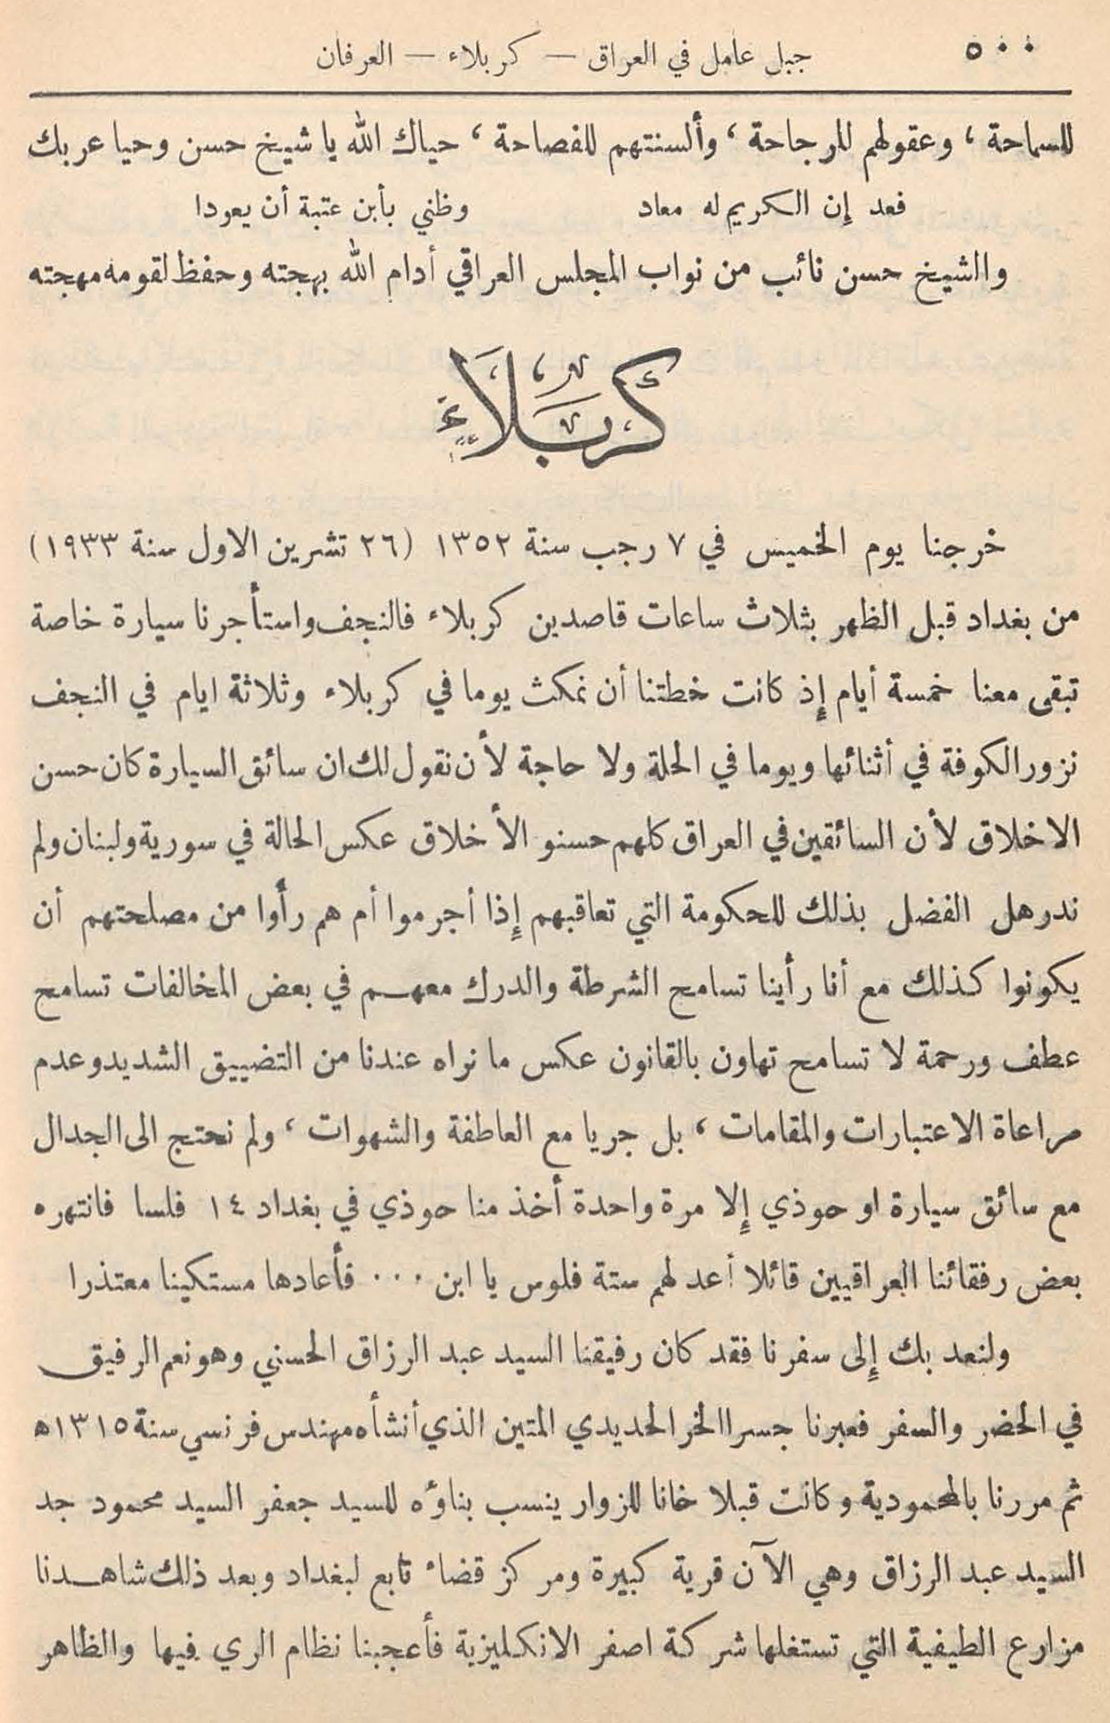 ٥٠٠
جبل عامل في العراق — كربلاء — العرفان
للسماحة ، وعقولهم للرجاحة ، وألسنتهم للفصاحة ، حياك الله يا شيخ حسن وحيا عربك
فعد إن الكريم له معاد وظني بأبن عتبة أن يعودا
والشيخ حسن نائب من نواب المجلس العراقي أدام الله بهجته وحفظ لقومه مهجته
كَرْبَلَاءُ
خرجنا يوم الخميس في ٧ رجب سنة ١٣٥٢ (٢٦ تشرين الاول سنة ١٩٣٣)
من بغداد قبل الظهر بثلاث ساعات قاصدين كربلاء فالنجف واستأجرنا سيارة خاصة
تبقى معنا خمسة أيام إذ كانت خطتنا أن نمكث يوما في كربلاء وثلاثة ايام في النجف
نزور الكوفة في أثنائها ويوما في الحلة ولا حاجة لأن نقول لك ان سائق السيارة كان حسن
الاخلاق لأن السائقين في العراق كلهم حسنو الأخلاق عكس الحالة في سورية ولبنان ولم
ندر هل الفضل بذلك للحكومة التي تعاقبهم إذا أجرموا أم هم رأوا من مصلحتهم أن
يكونوا كذلك مع أنا رأينا تسامح الشرطة والدرك معهم في بعض المخالفات تسامح
عطف ورحمة لا تسامح تهاون بالقانون عكس ما نراه عندنا من التضييق الشديد وعدم
مراعاة الاعتبارات والمقامات ، بل جريا مع العاطفة والشهوات ، ولم نحتج الى الجدال
مع سائق سيارة او حوذي إلا مرة واحدة أخذ منا حوذي في بغداد ١٤ فلسا فانتهره
بعض رفقائنا العراقيين قائلا أعد لهم ستة فلوس يا ابن ٠٠٠ فأعادها مستكينا معتذرا
ولنعد بك إلى سفرنا فقد كان رفيقنا السيد عبد الرزاق الحسني وهو نعم الرفيق
في الحضر والسفر فعبرنا جسرا الخر الحديدي المتين الذي أنشأه مهندس فرنسي سنة ١٣١٥ه
ثم مررنا بالمحمودية وكانت قبلا خانا للزوار ينسب بناؤه للسيد جعفر السيد محمود جد
السيد عبد الرزاق وهي الآن قرية كبيرة ومركز قضاء تابع لبغداد وبعد ذلك شاهدنا
مزارع الطيفية التي تستغلها شركة اصفر الانكليزية فأعجبنا نظام الري فيها والظاهر